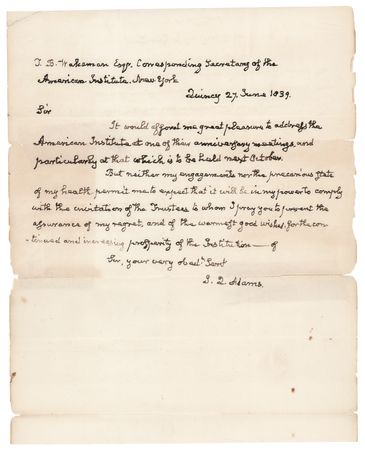 T. B. Wakeman Esqr. Corresponding Secretary of the
American Institute. New York
Quincy 27. June 1839.
Sir
It would afford me great pleasure to address the
American Institute at one of their anniversary meetings, and
particularly at that which is to be held next October.
But neither my engagements nor the precarious state
of my health, permit me to expect that it will be in my power to comply
with the invitation of the Trustees to whom I pray you to present the
assurance of my regret, and of the warmest good wishes, for the con-
tinued and increasing prosperity of the Institution — of
Sir, your very obedt. Servt
J. Q. Adams.